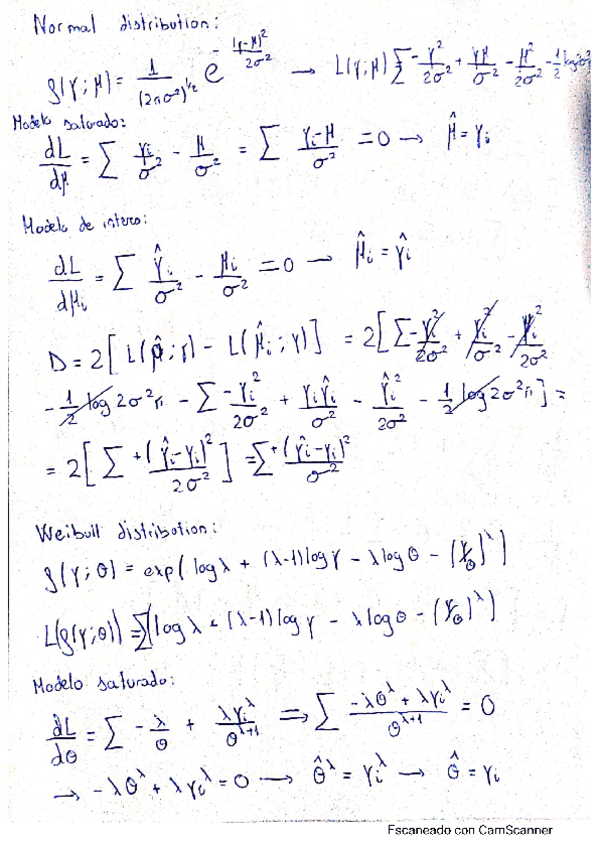 Normal distribution:
f(y; μ) = 1/(2πσ²)^{1/2} e^{-(y-μ)²/2σ²} → L(y; μ) = Σ -y²/2σ² + yμ/σ² - μ²/2σ² - 1/2 log 2σ²π
Modelo saturado:
dL/dμ = Σ yi/σ² - μ/σ² = Σ (yi-μ)/σ² = 0 → μ̂ = yi
Modelo de interes:
dL/dμi = Σ ŷi/σ² - μi/σ² = 0 → μ̂i = ŷi
D = 2[L(μ̂; y) - L(μ̂i; y)] = 2[Σ -yi²/2σ² + yi²/σ² - yi²/2σ²
- 1/2 log 2σ²π - Σ -yi²/2σ² + yiŷi/σ² - ŷi²/2σ² - 1/2 log 2σ²π] =
= 2[Σ +(ŷi-yi)²/2σ²] = Σ +(ŷi-yi)²/σ²
Weibull distribution:
f(y; θ) = exp(log λ + (λ-1) log y - λ log θ - (y/θ)^λ)
L(f(y; θ)) = Σ(log λ + (λ-1) log y - λ log θ - (y/θ)^λ)
Modelo saturado:
dL/dθ = Σ -λ/θ + λyi^λ/θ^{λ+1} ⇒ Σ (-λθ^λ + λyi^λ)/θ^{λ+1} = 0
→ -λθ^λ + λyi^λ = 0 → θ̂^λ = yi^λ → θ̂ = yi
Escaneado con CamScanner